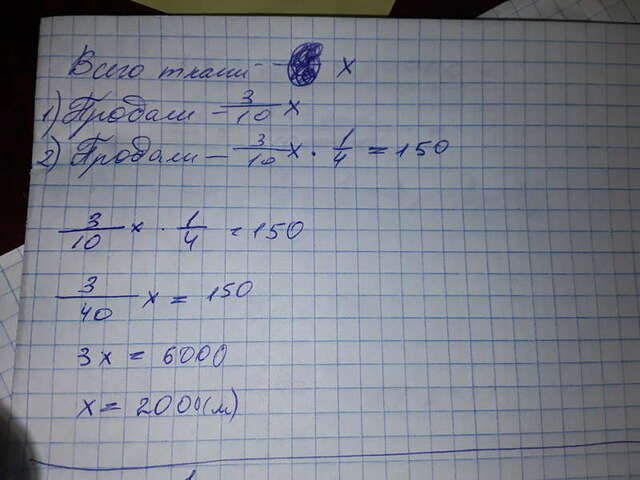 Всего ткани - x
1) Продали - 3/10 x
2) Продали - 3/10 x · 1/4 = 150
3/10 x · 1/4 = 150
3/40 x = 150
3x = 6000
x = 2000 (м)